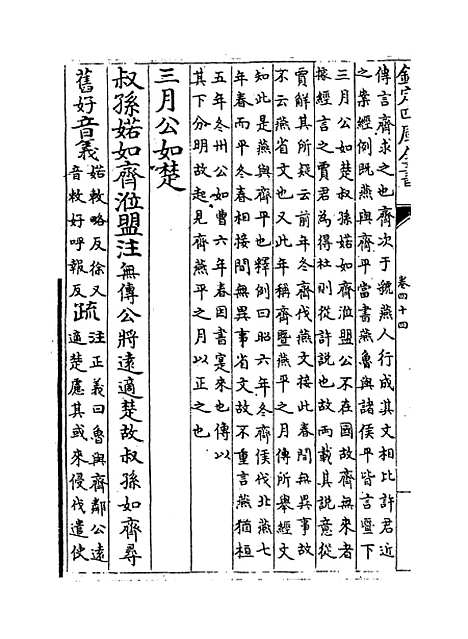 欽定四庫全書
卷四十四
傳言齊求之也齊次于虢燕人行成其文相比許君近
之案經例既燕與齊平當書燕魯與諸侯平皆言暨下
三月公如楚叔孫婼如齊涖盟公不在國故齊無來者
據經言之賈君為得杜則從許說也故兩載其說意從
賈解其所疑云前年冬齊伐燕文接此春間無異事故
不云燕省文也又此年稱齊暨燕平之月傳所舉經文
知此是燕與齊平也釋例曰昭六年冬齊侯伐北燕七
年春而平冬春相接間無異事省文故不重言燕猶桓
五年冬州公如曹六年春因書寔來也傳以
其下分明故起見齊燕平之月以正之也
三月公如楚
叔孫婼如齊涖盟注無傳公將遠適楚故叔孫如齊尋
舊好音義婼敕略反徐又音敕好呼報反疏注正義曰魯與齊鄰公遠適楚慮其或來侵伐遣使